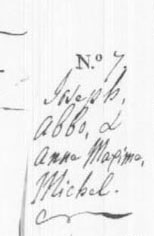 N.º 7,
Joseph,
Abbo, &
Anna Maxima,
Michel.